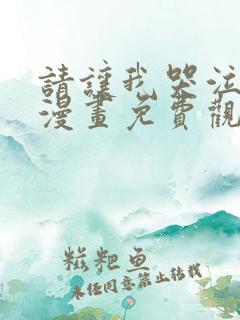 請讓我哭泣
漫畫免費觀
糍粑鱼
未经同意禁止转载